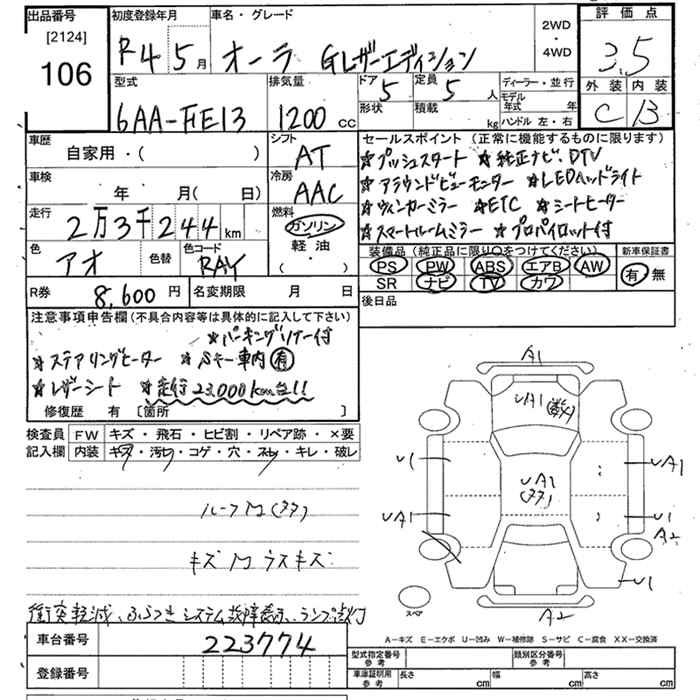 出品番号
[2124]
106
初度登録年月
R4 5月
車名・グレード
オーラ Gレザーエディション
2WD
・
4WD
評価点
3.5
外装 内装
C B
型式
6AA-FE13
排気量
1200 cc
ドア 5
定員 5 人
形状
積載 kg
ディーラー・並行
モデル
年式 年
ハンドル 左・右
車歴
自家用・( )
シフト
AT
車検
年 月(日)
冷房
AAC
走行
2万3千244km
燃料
ガソリン
軽油
( ・ )
色
アオ
色替
色コード
RAY
R券
8,600円
名変期限 月 日
セールスポイント(正常に機能するものに限ります)
☆プッシュスタート ☆純正ナビ、DTV
☆アラウンドビューモニター ☆LEDヘッドライト
☆ウィンカーミラー ☆ETC ☆シートヒーター
☆スマートルームミラー ☆プロパイロット付
装備品(純正品に限り○をつけてください)
PS PW ABS エアB AW
SR ナビ TV カワ
新車保証書
有 無
後日品
注意事項申告欄(不具合内容等は具体的に記入して下さい)
☆パーキングソナー付
☆ステアリングヒーター ☆Sキー車内有
☆レザーシート ☆走行23,000km台!!
修復歴 有 [箇所 ]
検査員
記入欄
FW キズ・飛石・ヒビ割・リペア跡・×要
内装 キズ・汚れ・コゲ・穴・スレ・キレ・破レ
キズM ウスキズ
衝突軽減、ふらつきシステム故障表示、ランプ点灯
A1
UA1
U1
UA1
UA1
U1
A2
U1
A2
スペア
A−キズ E−エクボ U−凹み W−補修跡 S−サビ C−腐食 XX−交換済
車台番号
223774
登録番号
型式指定番号
参考
類別区分番号
参考
車庫証明用
参考
長さ cm
幅 cm
高さ cm